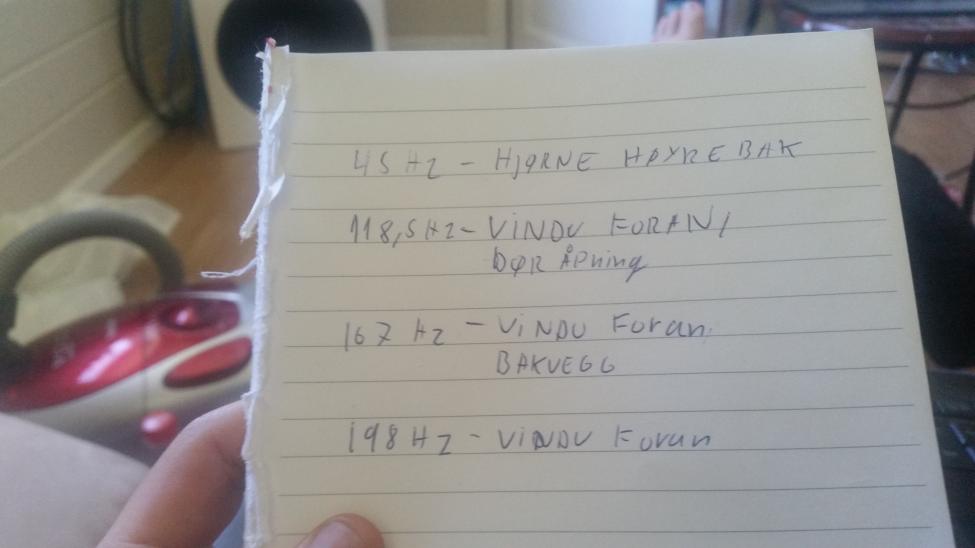 45 Hz - HJØRNE HØYRE BAK
118,5 Hz - ViNDU FORAN/
DØR ÅPning
167 Hz - ViNDU Foran
BAKVEGG
198 Hz - ViNDU Foran